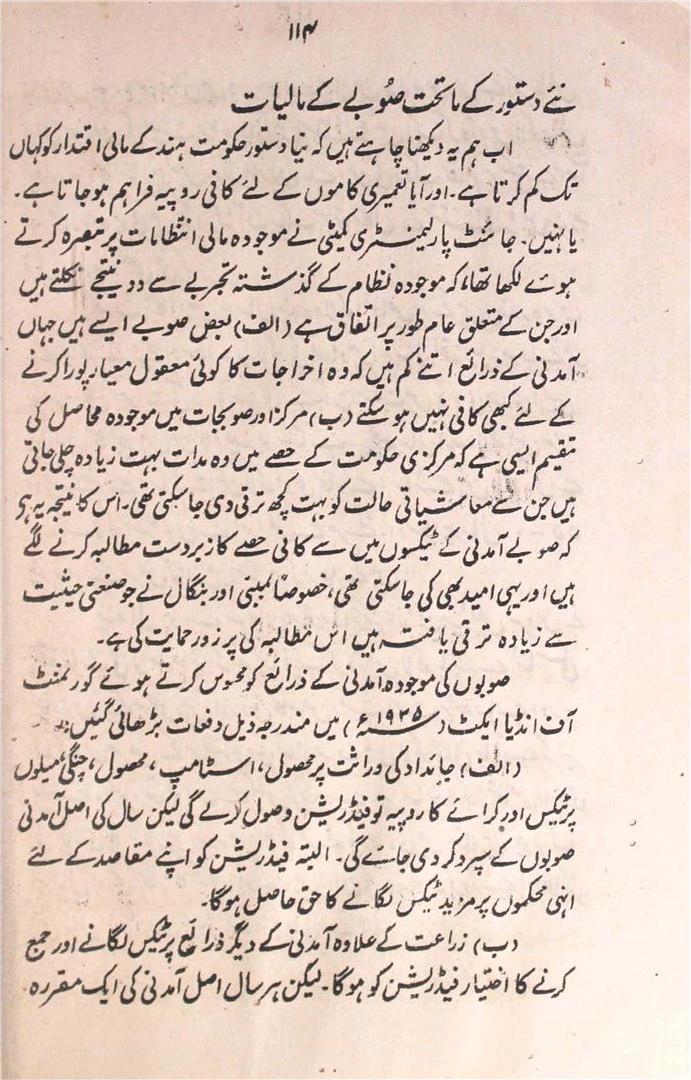 ۱۱۴
نئے دستور کے ماتحت صُوبے کے مالیات
اب ہم یہ دیکھنا چاہتے ہیں کہ نیا دستور حکومت ہند کے مالی اقتدار کو کہاں
تک کم کرتا ہے۔ اور آیا تعمیری کاموں کے لئے کافی روپیہ فراہم ہو جاتا ہے۔
یا نہیں۔ جائنٹ پارلیمنٹری کمیٹی نے موجودہ مالی انتظامات پر تبصرہ کرتے
ہوئے لکھا تھا، کہ موجودہ نظام کے گذشتہ تجربے سے دو نتیجے نکلتے ہیں
اور جن کے متعلق عام طور پر اتفاق ہے (الف) بعض صوبے ایسے ہیں جہاں
آمدنی کے ذرائع اتنے کم ہیں کہ وہ اخراجات کا کوئی معقول معیار پورا کرنے
کے لئے کبھی کافی نہیں ہو سکتے (ب) مرکز اور صوبجات میں موجودہ محاصل کی
تقیم ایسی ہے کہ مرکزی حکومت کے حصے میں وہ مدات بہت زیادہ چلی جاتی
ہیں جن سے معاشیاتی حالت کو بہت کچھ ترقی دی جا سکتی تھی۔ اس کا نتیجہ یہ ہے
کہ صوبے آمدنی کے ٹیکسوں میں سے کافی حصے کا زبردست مطالبہ کرنے لگے
ہیں اور یہی امید بھی کی جا سکتی تھی، خصوصاً بمبئی اور بنگال نے جو صنعتی حیثیت
سے زیادہ ترقی یافتہ ہیں اس مطالبہ کی پر زور حمایت کی ہے۔
صوبوں کی موجودہ آمدنی کے ذرائع کو محسوس کرتے ہوئے گورنمنٹ
آف انڈیا ایکٹ (۱۹۳۵ء) میں مندرجہ ذیل دفعات بڑھائی گئیں:۔
(الف) جائداد کی وراثت پر محصول، اسٹامپ، محصول، چنگی، میلوں
پر ٹیکس اور کرائے کا روپیہ تو فیڈریشن وصول کرے گی لیکن سال کی اصل آمدنی
صوبوں کے سپرد کر دی جائے گی۔ البتہ فیڈریشن کو اپنے مقاصد کے لئے
انہی محکموں پر مزید ٹیکس لگانے کا حق حاصل ہوگا۔
(ب) زراعت کے علاوہ آمدنی کے دیگر ذرائع پر ٹیکس لگانے اور جمع
کرنے کا اختیار فیڈریشن کو ہوگا۔ لیکن ہر سال اصل آمدنی کی ایک مقررہ